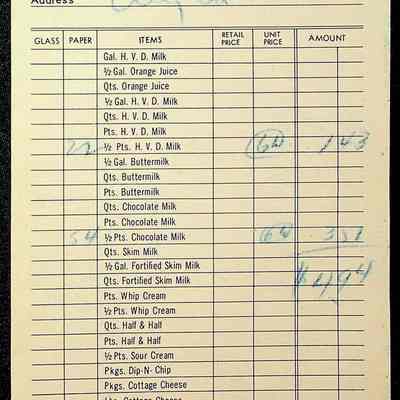 Address
GLASS PAPER ITEMS RETAIL PRICE UNIT PRICE AMOUNT
Gal. H. V. D. Milk
½ Gal. Orange Juice
Qts. Orange Juice
½ Gal. H. V. D. Milk
Qts. H. V. D. Milk
Pts. H. V. D. Milk
22 ½ Pts. H. V. D. Milk 6½ 143
½ Gal. Buttermilk
Qts. Buttermilk
Pts. Buttermilk
Qts. Chocolate Milk
Pts. Chocolate Milk
54 ½ Pts. Chocolate Milk 6½ 351
Qts. Skim Milk
½ Gal. Fortified Skim Milk $494
Qts. Fortified Skim Milk
Pts. Whip Cream
½ Pts. Whip Cream
Qts. Half & Half
Pts. Half & Half
½ Pts. Sour Cream
Pkgs. Dip-N- Chip
Pkgs. Cottage Cheese
Cottage Cheese